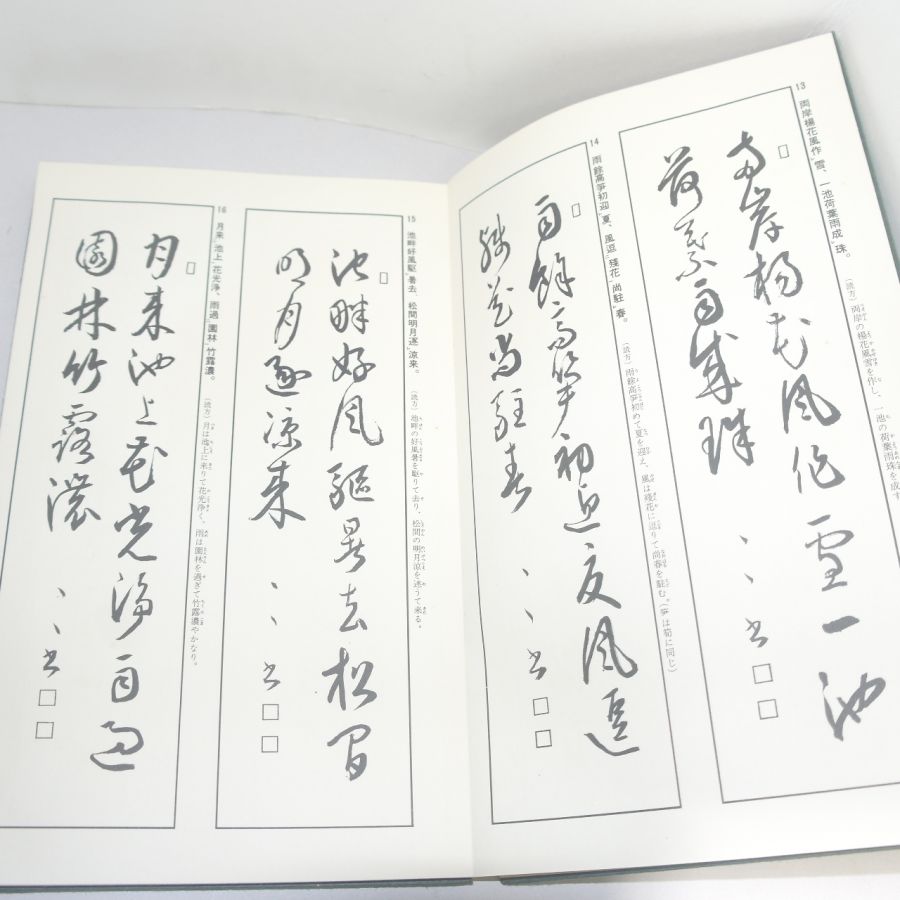 13
両岸楊花風作雪、一池荷葉雨成珠。
(読方)両岸の楊花風雪を作し、一池の荷葉雨珠を成す
両岸楊花風作雪一池
荷葉雨成珠
、、書
14
雨餘高笋初迎夏、風逗残花尚駐春。
(読方)雨餘高笋初めて夏を迎え、風は残花に逗りて尚春を駐む。(笋は筍に同じ)
雨餘高笋初迎夏風逗
残花尚駐春
、、書
15
池畔好風駆暑去、松間明月逐涼来。
(読方)池畔の好風暑を駆りて去り、松間の明月涼を逐うて来る。
池畔好風駆暑去松間
明月逐涼来
、、書
16
月来池上花光浄、雨過園林竹露濃。
(読方)月は池上に来りて花光浄く、雨は園林を過ぎて竹露濃やかなり。
月来池上花光浄雨過
園林竹露濃
、、書